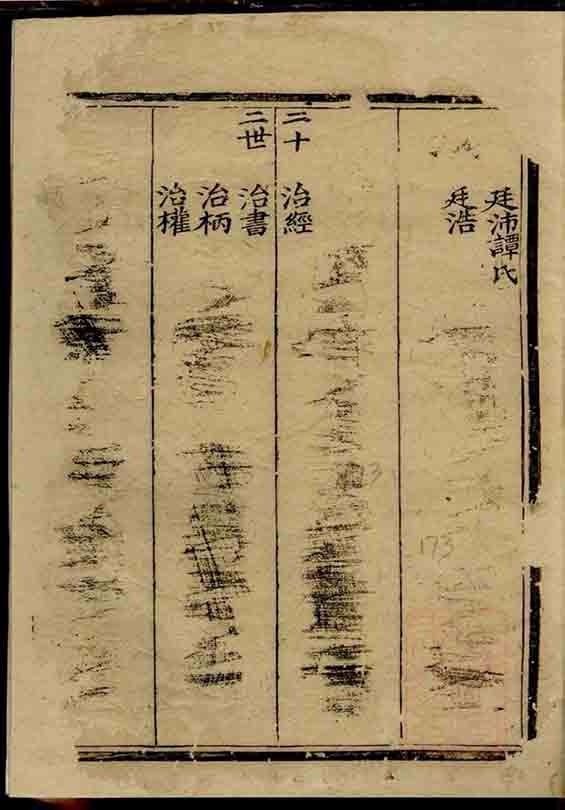 廷沛譚氏
廷浩
二十
治經
二世
治書
治柄
治權
173